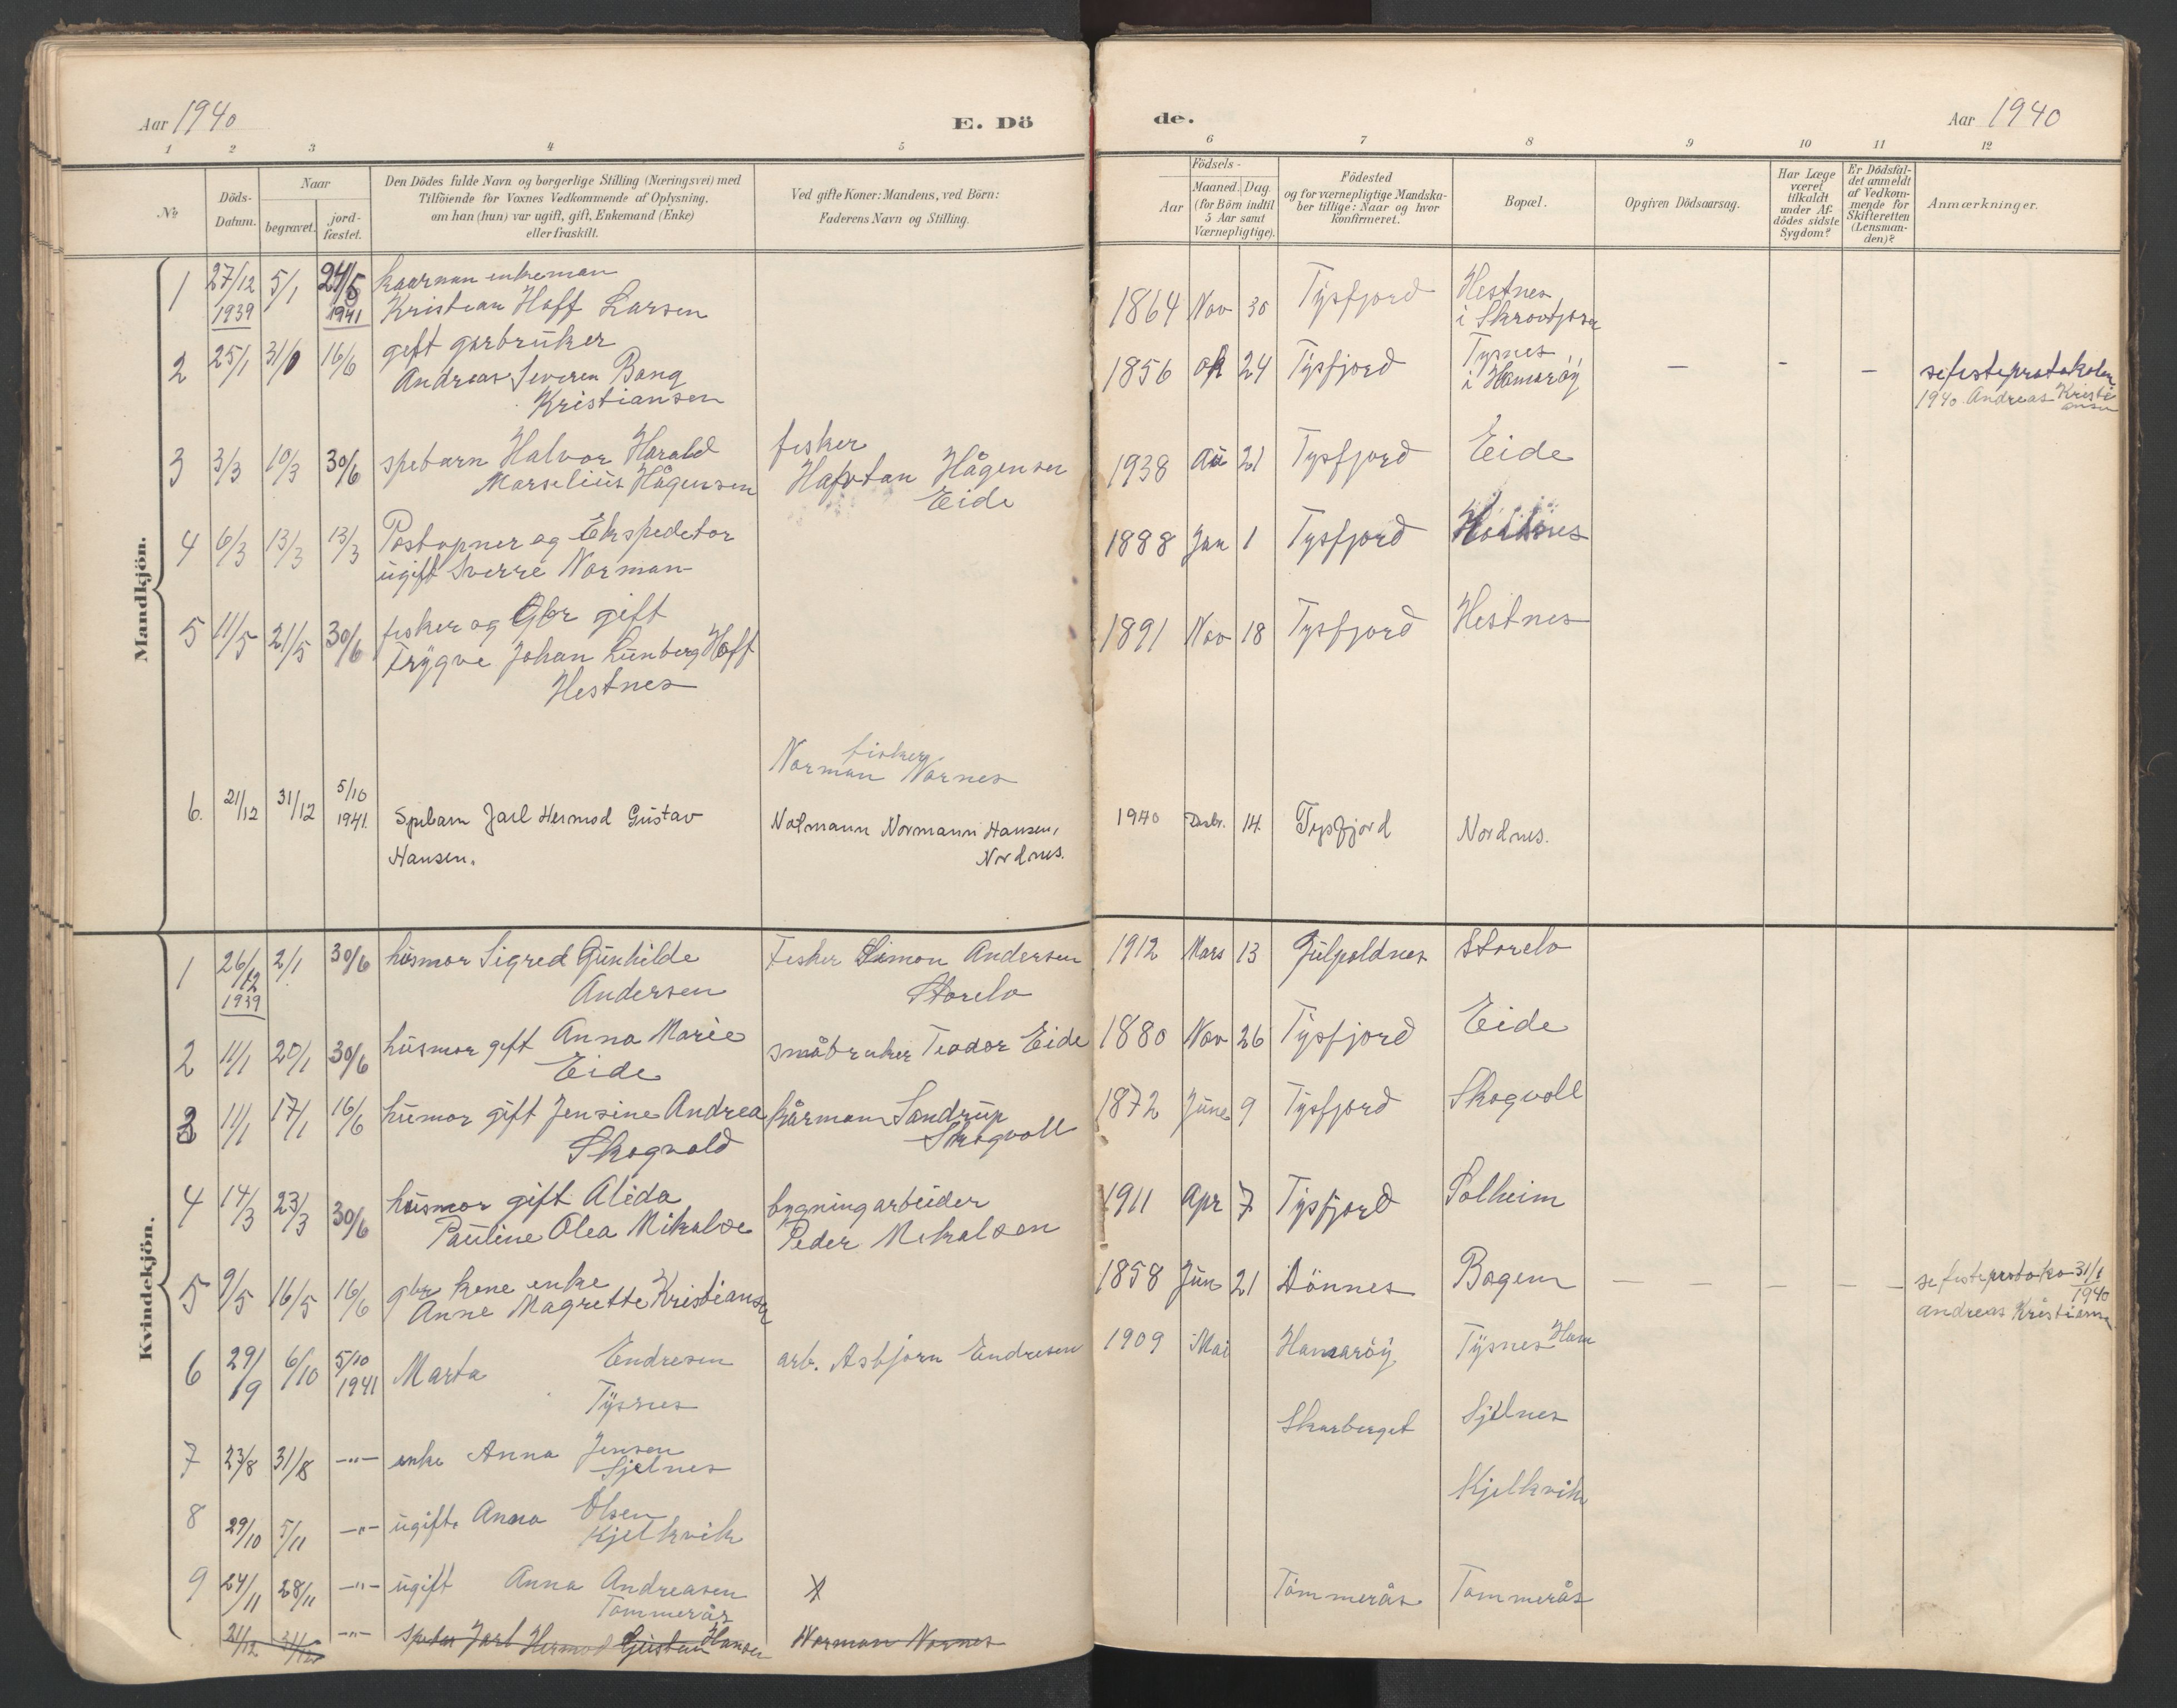 Aar 1940
E. Dö
de.
Aar 1940
1 2 3 4 5 6 7 8 9 10 11 12
No
Döds-
Datum.
Naar
begravet.
jord-
fæstet.
Den Dödes fulde Navn og borgerlige Stilling (Næringsvei) med
Tilföiende for Voxnes Vedkommende af Oplysning,
om han (hun) var ugift, gift, Enkemand (Enke)
eller fraskilt.
Ved gifte Koner: Mandens, ved Börn:
Faderens Navn og Stilling.
Födsels-
Aar
Maaned. Dag.
(for Börn indtil
5 Aar samt
Værnepligtige).
Födested
og for værnepligtige Mandska-
ber tillige: Naar og hvor
konfirmeret.
Bopæl.
Opgiven Dödsaarsag.
Har Læge
været
tilkaldt
under Af-
dödes sidste
Sygdom?
Er Dödsfal-
det anmeldt
af Vedkom-
mende for
Skifteretten
(Lensman-
den)?
Anmærkninger.
Mandkjön.
1 27/12 5/1 24/5 kaarman enkeman
1939 1941 Kristian Hoff Larsen
1864 Nov 30 Tysfjord Hestnes
i
2 25/1 31/1 16/6 gift garbruker
Andreas Severen Bang
Kristiansen
1856 ok 24 Tysfjord Tysnes
i Hamarøy
— - —
se festeprotokolen
1940 Andreas Kristi
ansen
3 3/3 10/3 30/6 spebarn Halvor Harald
Marselius Hågensen
fisker
Hågensen
Eide
1938 Au 21 Tysfjord Eide
4 6/3 13/3 13/3 Postopner og Ekspeditor
ugift Sverre Norman
1888 Jan 1 Tysfjord
5 11/5 21/5 30/6 fisker og Gbr gift
Trygve Johan Lunberg Hoff
Hestnes
1891 Nov 18 Tysfjord Hestnes
fisker
Norman Nornes
6. 21/12 31/12 5/10
1941. Spebarn Jarl Hermod Gustav
Hansen.
Normann Normann Hansen,
Nordnes.
1940 Desbr. 14. Tysfjord Nordnes.
Kvindekjön.
1 26/12 2/1 30/6 husmor Sigred Gunhilde
1939 Andersen
Fisker Simon Andersen
Storelv
1912 Mars 13 Storelv
2 11/1 20/1 30/6 husmor gift Anna Marie
Eide
småbruker Teodor Eide
1880 Nov 26 Tysfjord Eide
3 11/1 17/1 16/6 humor gift Jensine Andrea
Skogvold
kårman Sandrup
Skogvoll
1872 June 9 Tysfjord Skogvoll
4 14/3 23/3 30/6 husmor gift Alida
Pauline Olea Mikalse
bygningarbeider
Peder Mikalsen
1911 Apr 7 Tysfjord Solheim
5 9/5 16/5 16/6 gbr kone enke
Anne Magrette Kristiansen
1858 Jun 21 Dönnes Bogem
— — — — —
se festeprotoko 31/1
1940
andreas Kristianse
6 29/9 6/10 5/10
1941 Marta Endresen
Tysnes
arb. Asbjørn Endresen
1909 Mai Hamarøy Tysnes Ham
7 23/8 31/8 —"— enke Anna Jensen
Sjelnes
Skarberget Sjelnes
8 29/10 5/11 —"— ugift. Anna Olsen
Kjelkvik
Kjelkvik
9 24/11 28/11 —"— ugift Anna Andreasen
Tommerås
X
Tømmerås Tommerås
21/12 31/12 —"— speba Jarl Hermod Gustav Hansen Norman Nornes